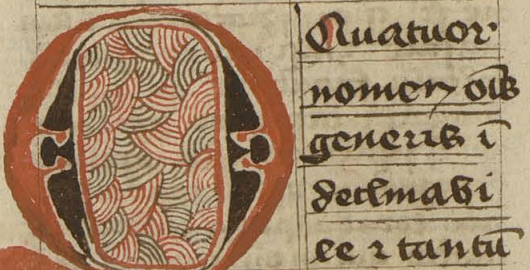 Quatuor
nomen oīs
generis ī
declinabi
le ⁊ tantū